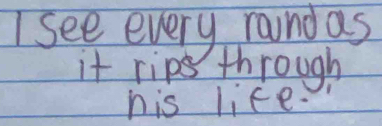 I see every round as
it rips through
his life.